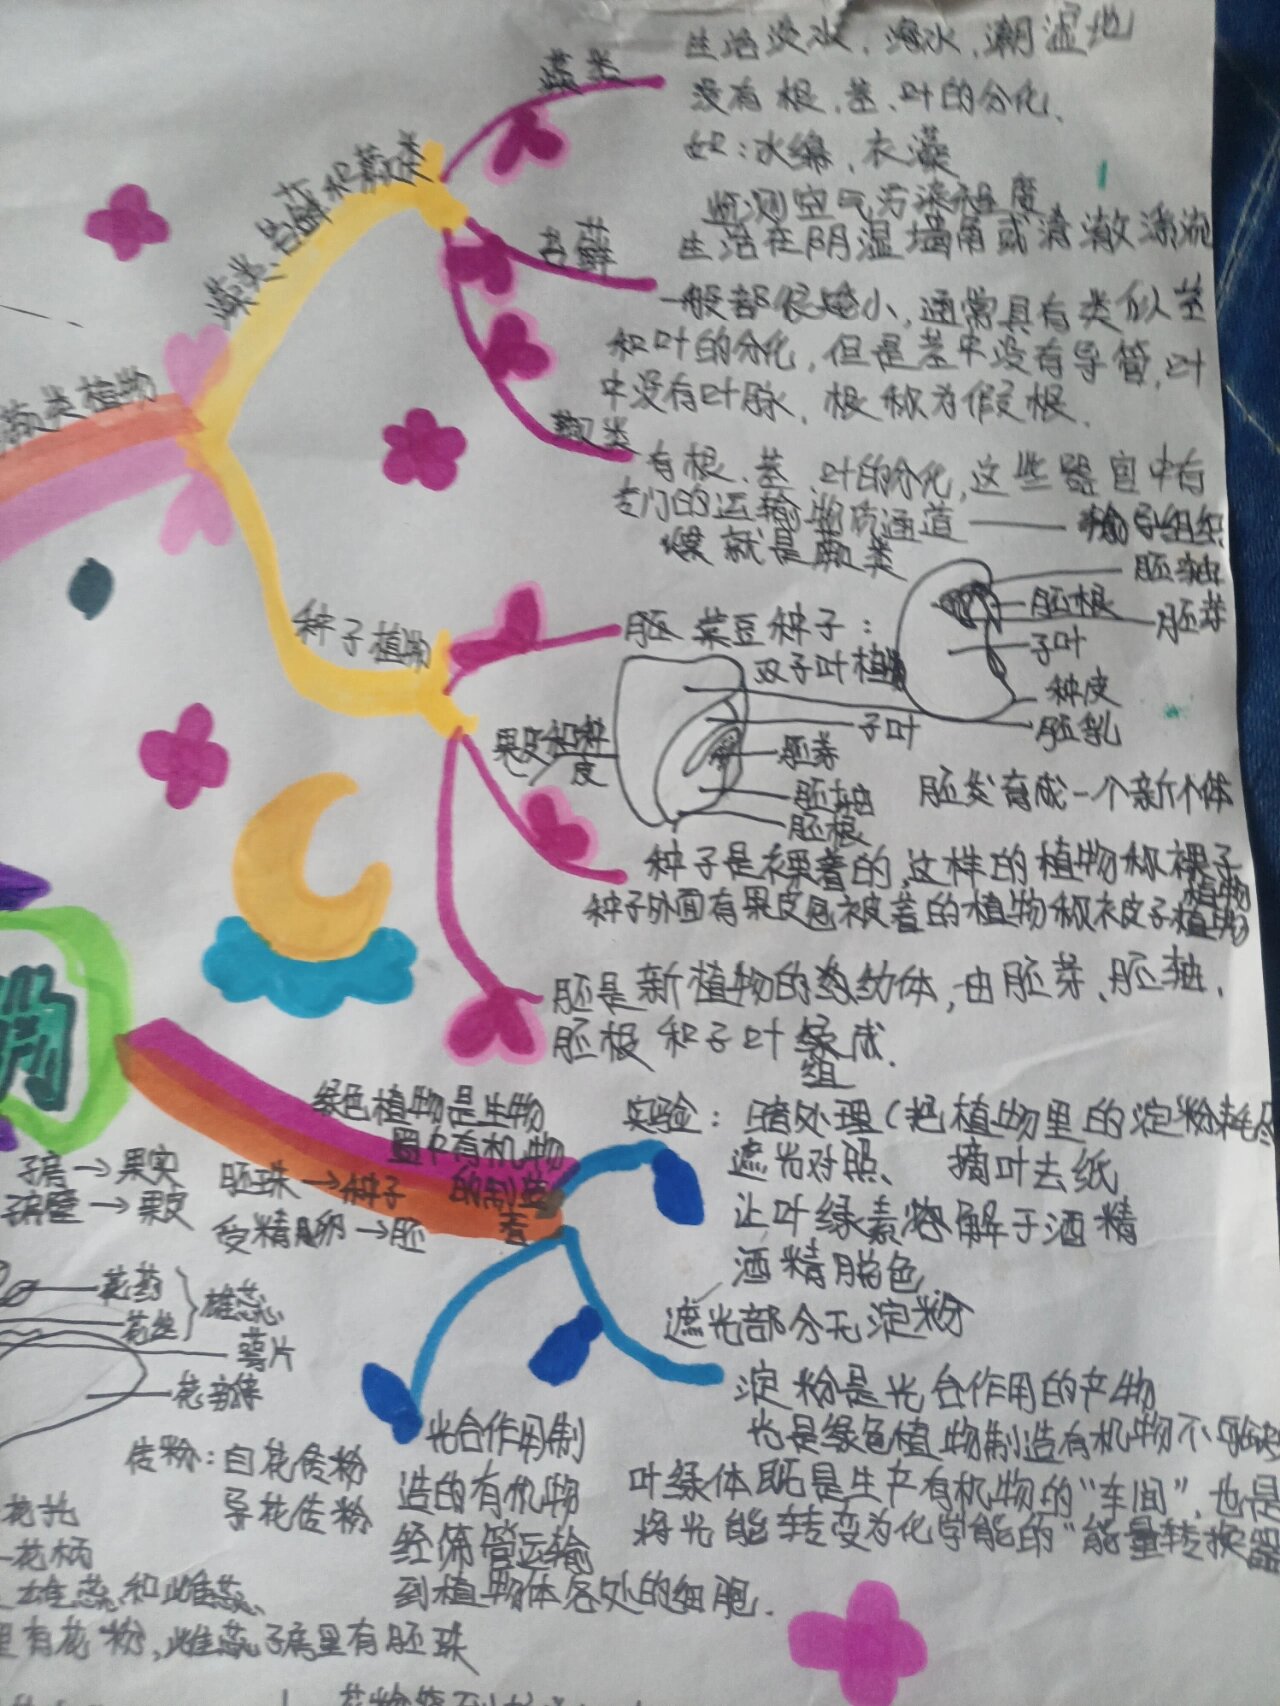 生活淡水、海水、潮湿地
藻类
没有根、茎、叶的分化.
如：水绵、衣藻
藻类、苔藓和蕨类
监测空气污染程度
生活在阴湿墙角或清澈溪流
苔藓
一般都很矮小，通常具有类似茎
和叶的分化，但是茎中没有导管，叶
中没有叶脉，根称为假根.
蕨类植物
蕨类
有根、茎、叶的分化，这些器官中有
专门的运输物质通道——输导组织
煤就是蕨类
种子植物
胚 菜豆种子：
双子叶植物
胚轴
胚根
胚芽
子叶
种皮
胚乳
果皮和种
皮
子叶
胚芽
胚轴
胚根
胚发育成一个新个体
种子是裸着的，这样的植物称裸子
植物
种子外面有果皮包被着的植物称被子植物
胚是新植物的幼体，由胚芽、胚轴、
胚根和子叶
组
成.
绿色植物是生物
圈中有机物
的制造
者
实验：暗处理（把植物里的淀粉耗尽
遮光对照、 摘叶去纸
让叶绿素溶解于酒精
酒精脱色
遮光部分无淀粉
子房→果实 胚珠→种子
子房壁→果皮
受精卵→胚
花药
花丝
雄蕊
萼片
花瓣
淀粉是光合作用的产物
光是绿色植物制造有机物不可缺
叶绿体既是生产有机物的“车间”，也是
将光能转变为化学能的“能量转换器
光合作用制
造的有机物
经筛管运输
到植物体各处的细胞.
传粉：自花传粉
异花传粉
花托
花柄
雄蕊和雌蕊、
里有花粉，雌蕊子房里有胚珠